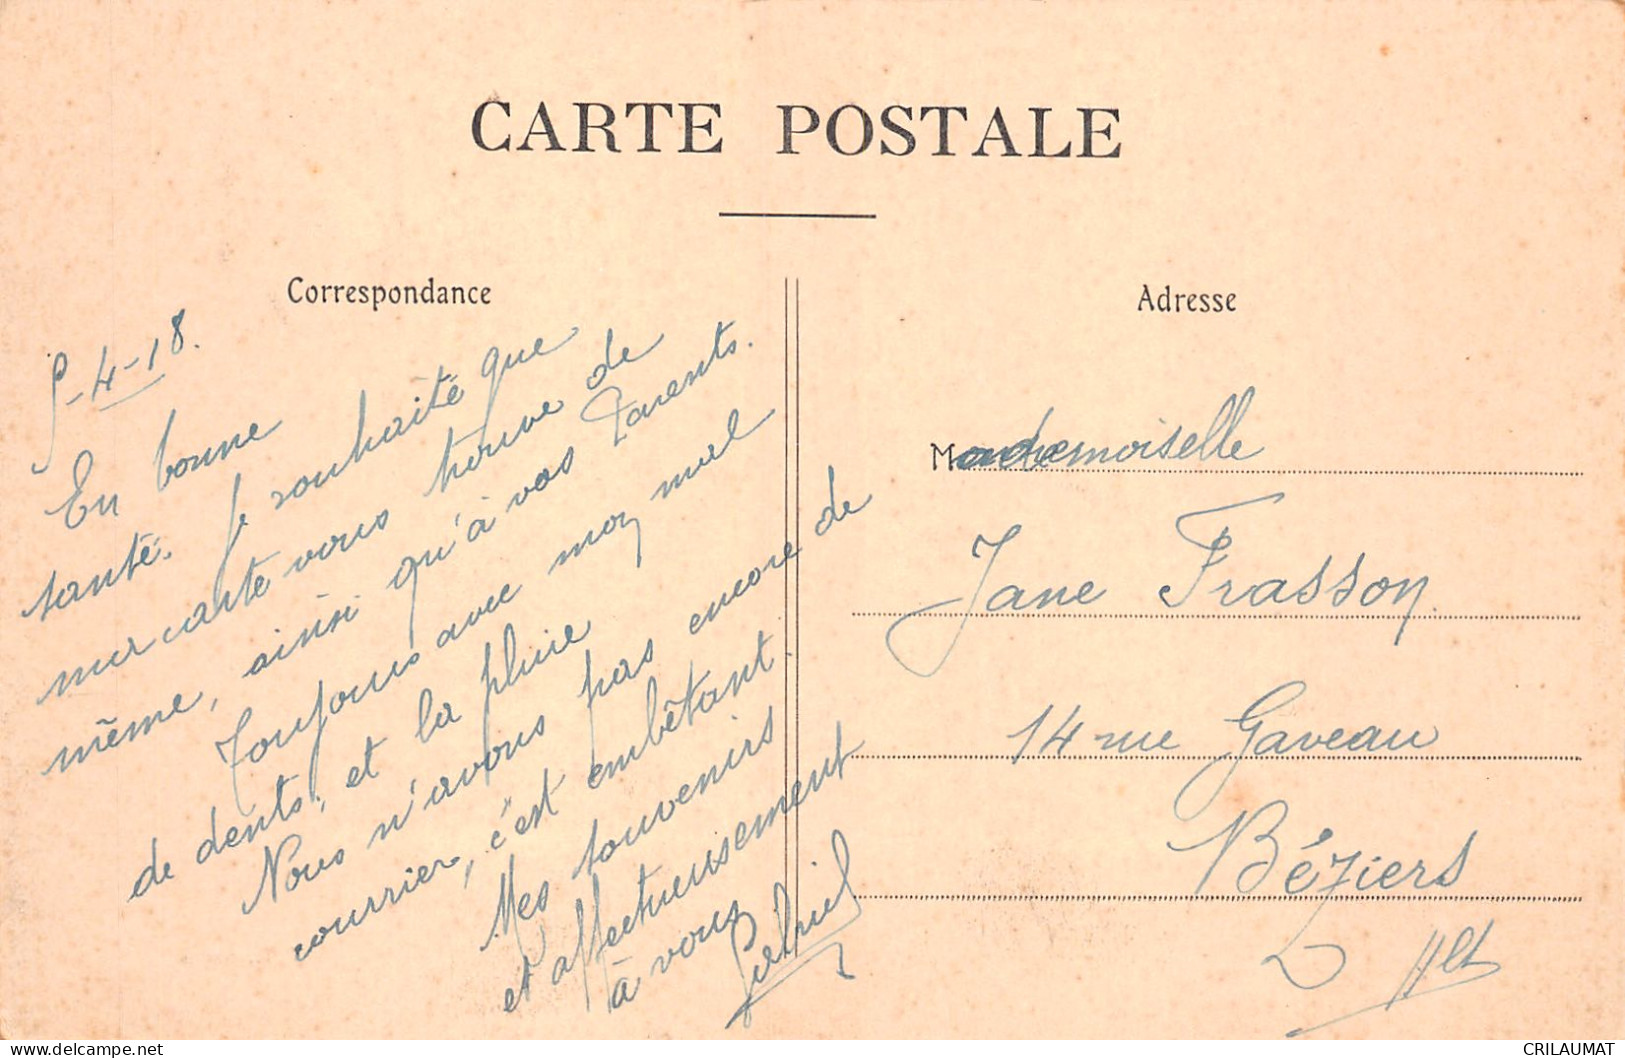 CARTE POSTALE
Correspondance
-4-18.
En bonne
santé. Je souhaite que
ma carte vous trouve de
même, ainsi qu'à vos Parents.
Toujours avec mon mal
de dents, et la pluie
Nous n'avons pas encore de
courrier, c'est embêtant
Mes souvenirs
et affectueusement
à vous
Gabriel
Adresse
Mademoiselle
Jane Frasson
14 rue Gaveau
Béziers
Hlt
CRILAUMAT